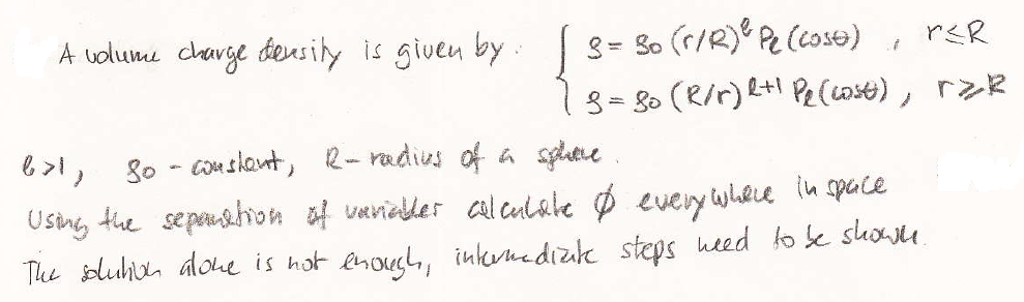 A volume charge density is given by: { ρ = ρ₀ (r/R)^ℓ Pℓ (cosθ) , r ≤ R
ρ = ρ₀ (R/r)^ℓ+1 Pℓ (cosθ) , r ≥ R
ℓ>1, ρ₀ - constant, R - radius of a sphere.
Using the separation of variables calculate ϕ everywhere in space
The solution alone is not enough, intermediate steps need to be shown.